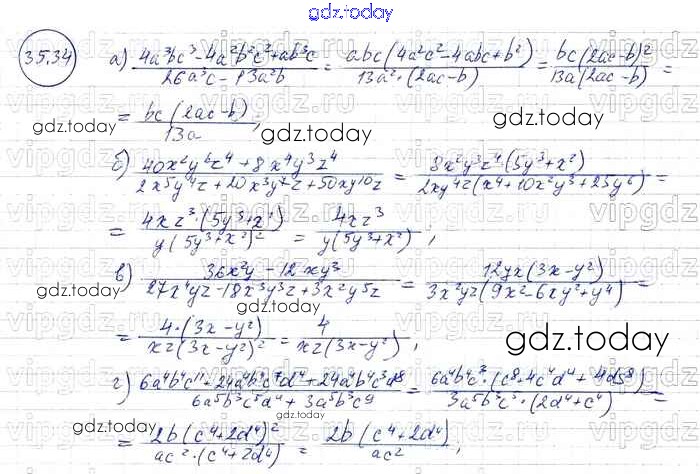 gdz.today
35.34
а) (4a³bc³ - 4a²b²c² + ab³c)/(26a³c - 13a²b) = abc(4a²c² - 4abc + b²)/(13a²·(2ac-b)) = bc(2ac-b)²/(13a(2ac-b)) =
= bc(2ac-b)/13a ;
gdz.today
gdz.today
б) (40x²y⁶z⁴ + 8x⁴y³z⁴)/(2x⁵y⁴z + 20x³y⁷z + 50xy¹⁰z) = 8x²y³z⁴(5y³+x²)/(2xy⁴z(x⁴+10x²y³+25y⁶)) =
= 4xz³·(5y³+x²)/(y(5y³+x²)²) = 4xz³/(y(5y³+x²)) ;
в) (36x²y - 12xy³)/(27x⁴yz - 18x³y³z + 3x²y⁵z) = 12yx(3x-y²)/(3x²yz(9x²-6xy²+y⁴)) =
gdz.today
= 4·(3x-y²)/(xz(3x-y²)²) = 4/(xz(3x-y²)) ;
gdz.today
г) (6a⁴b⁴c¹¹ + 24a⁴b⁴c⁷d⁴ + 24a⁴b⁴c³d⁸)/(6a⁵b³c⁵d⁴ + 3a⁵b³c⁹) = 6a⁴b⁴c³·(c⁸+4c⁴d⁴+4d⁸)/(3a⁵b³c⁵·(2d⁴+c⁴)) =
= 2b(c⁴+2d⁴)²/(ac²·(c⁴+2d⁴)) = 2b(c⁴+2d⁴)/ac² ;
gdz.today